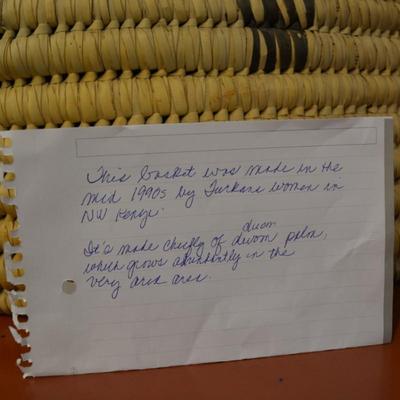 This basket was made in the
mid 1990s by Turkana women in
NW Kenya.
duom
It's made chiefly of dwom palm,
which grows abundantly in the
very arid area.